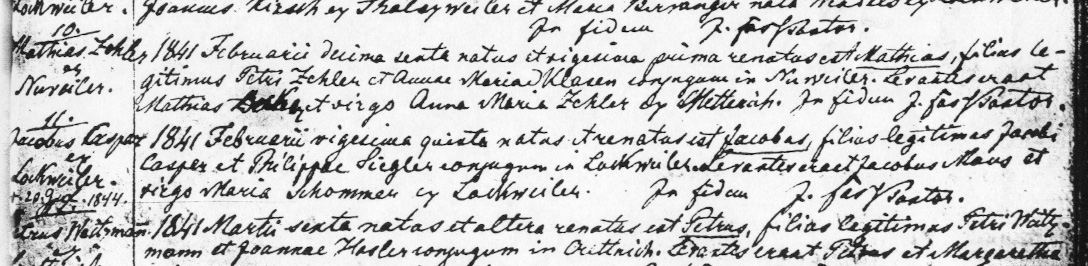 Lockweiler.
Joannes Kirsch ex Thaleyweiler et Maria
In fidem J. Fass Pastor.
10.
Mathias Zehler
ex
Nuweiler.
1841 Februarii decima sexta natus et vigesima prima renatus est Mathias, filius le-
gitimus Petri Zehler et Annae Mariae Klasen conjugum in Nuweiler. Levantes erant
Mathias et virgo Anna Maria Zehler ex Mettnich. In fidem J. Fass Pastor.
11.
Jacobus Casper
ex
Lockweiler.
1844.
1841 Februarii vigesima quinta natus et renatus est Jacobus, filius legitimus Jacobi
Casper et Philippae Ziegler conjugum in Lockweiler. Levantes erant Jacobus Maus et
virgo Maria Schommer ex Lockweiler. In fidem J. Fass Pastor.
Petrus Weitzmann
1841 Martii sexta natus et altera renatus est Petrus, filius legitimus Petri Weitz-
mann et Joannae Hasler conjugum in Crettnich. Levantes erant Petrus et Margaretha